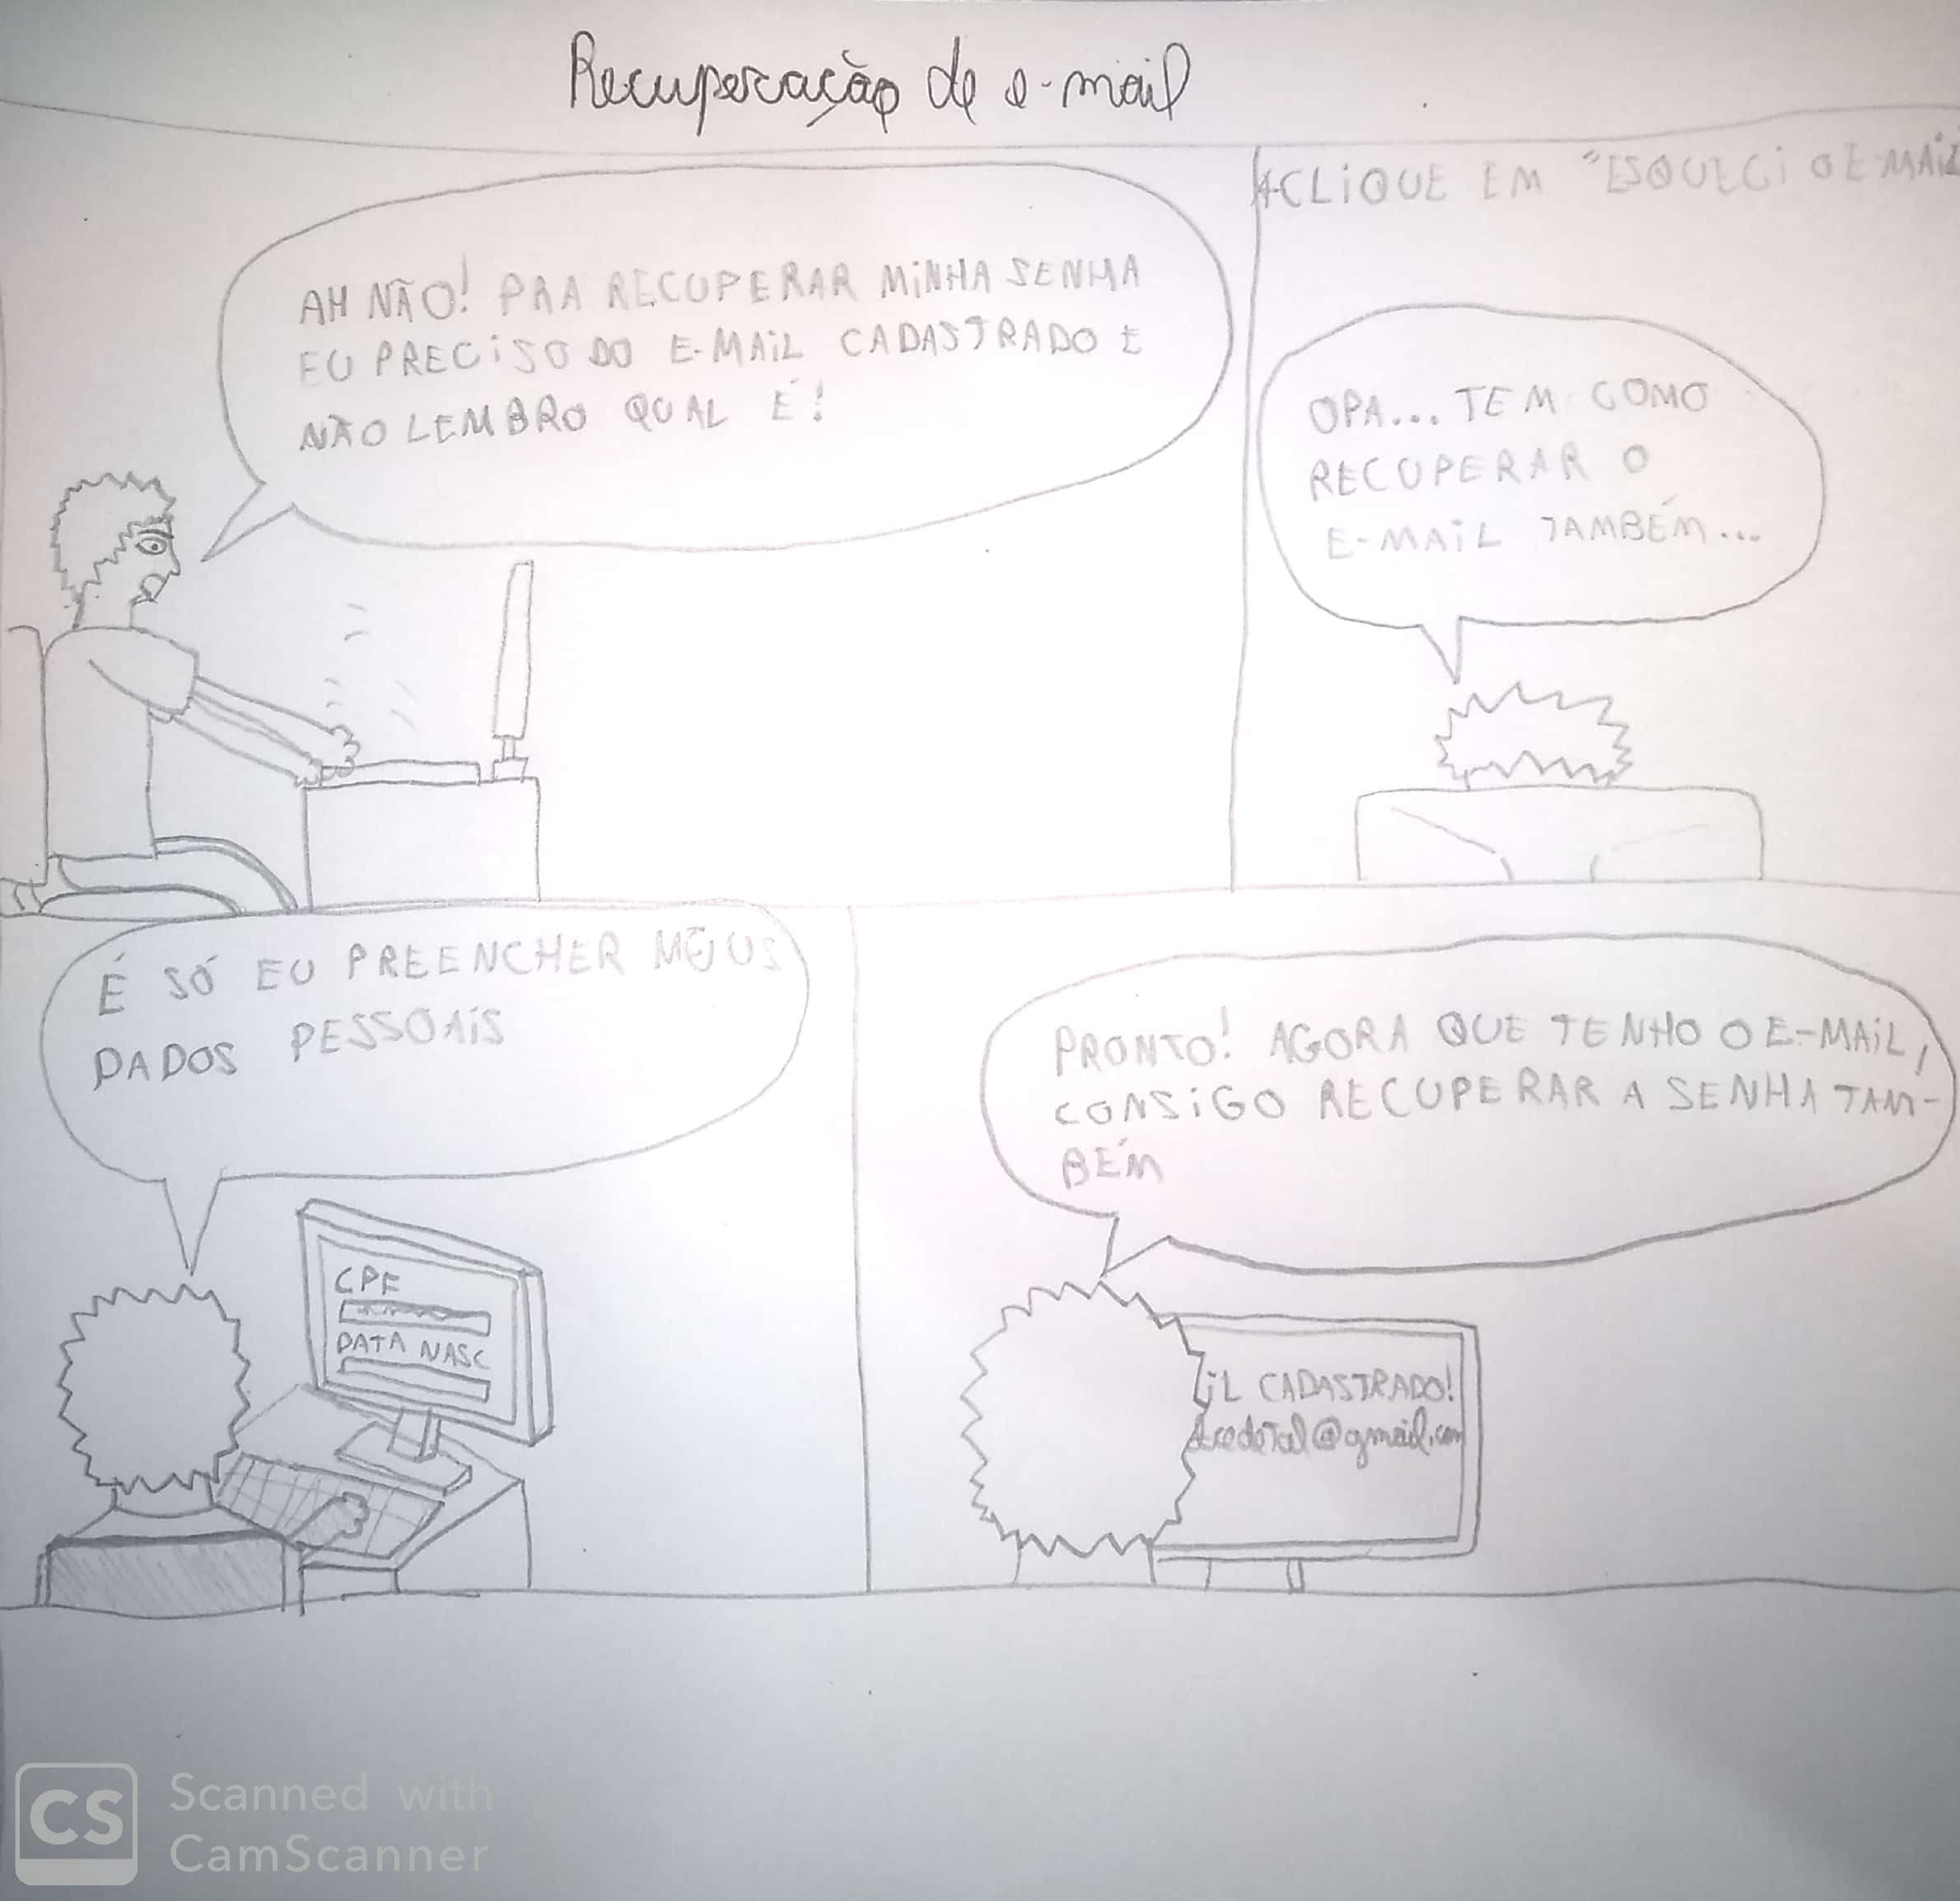 Recuperação de e-mail
AH NÃO! PRA RECUPERAR MINHA SENHA
EU PRECISO DO E-MAIL CADASTRADO E
NÃO LEMBRO QUAL É!
*CLIQUE EM "ESQUECI O E-MAIL
OPA... TEM COMO
RECUPERAR O
E-MAIL TAMBÉM...
É SÓ EU PREENCHER MEUS
DADOS PESSOAIS
CPF
DATA NASC
PRONTO! AGORA QUE TENHO O E-MAIL,
CONSIGO RECUPERAR A SENHA TAM-
BÉM
IL CADASTRADO!
@gmail.com
CS
Scanned with
CamScanner